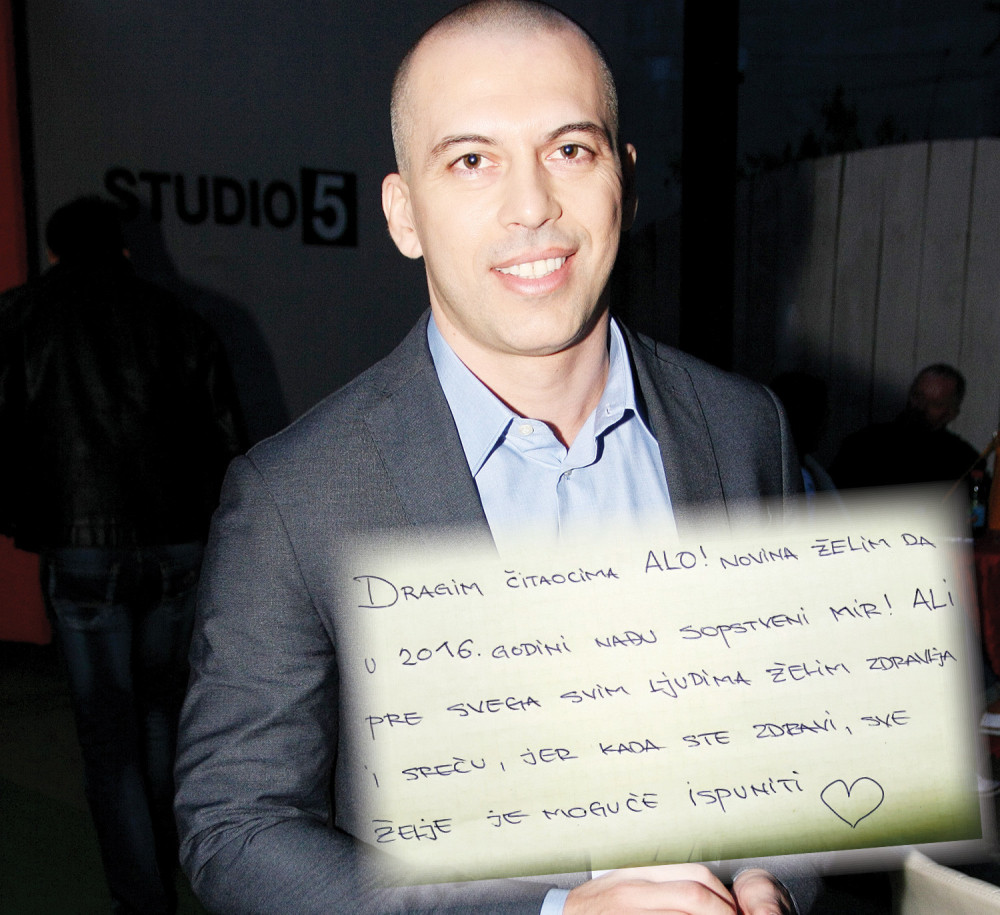 STUDIO 5
DRAGIM ČITAOCIMA ALO! NOVINA ŽELIM DA
U 2016. GODINI NAĐU SOPSTVENI MIR! ALI
PRE SVEGA SVIM LJUDIMA ŽELIM ZDRAVLJA
I SREČU, JER KADA STE ZDRAVI, SVE
ŽELJE JE MOGUČE ISPUNITI